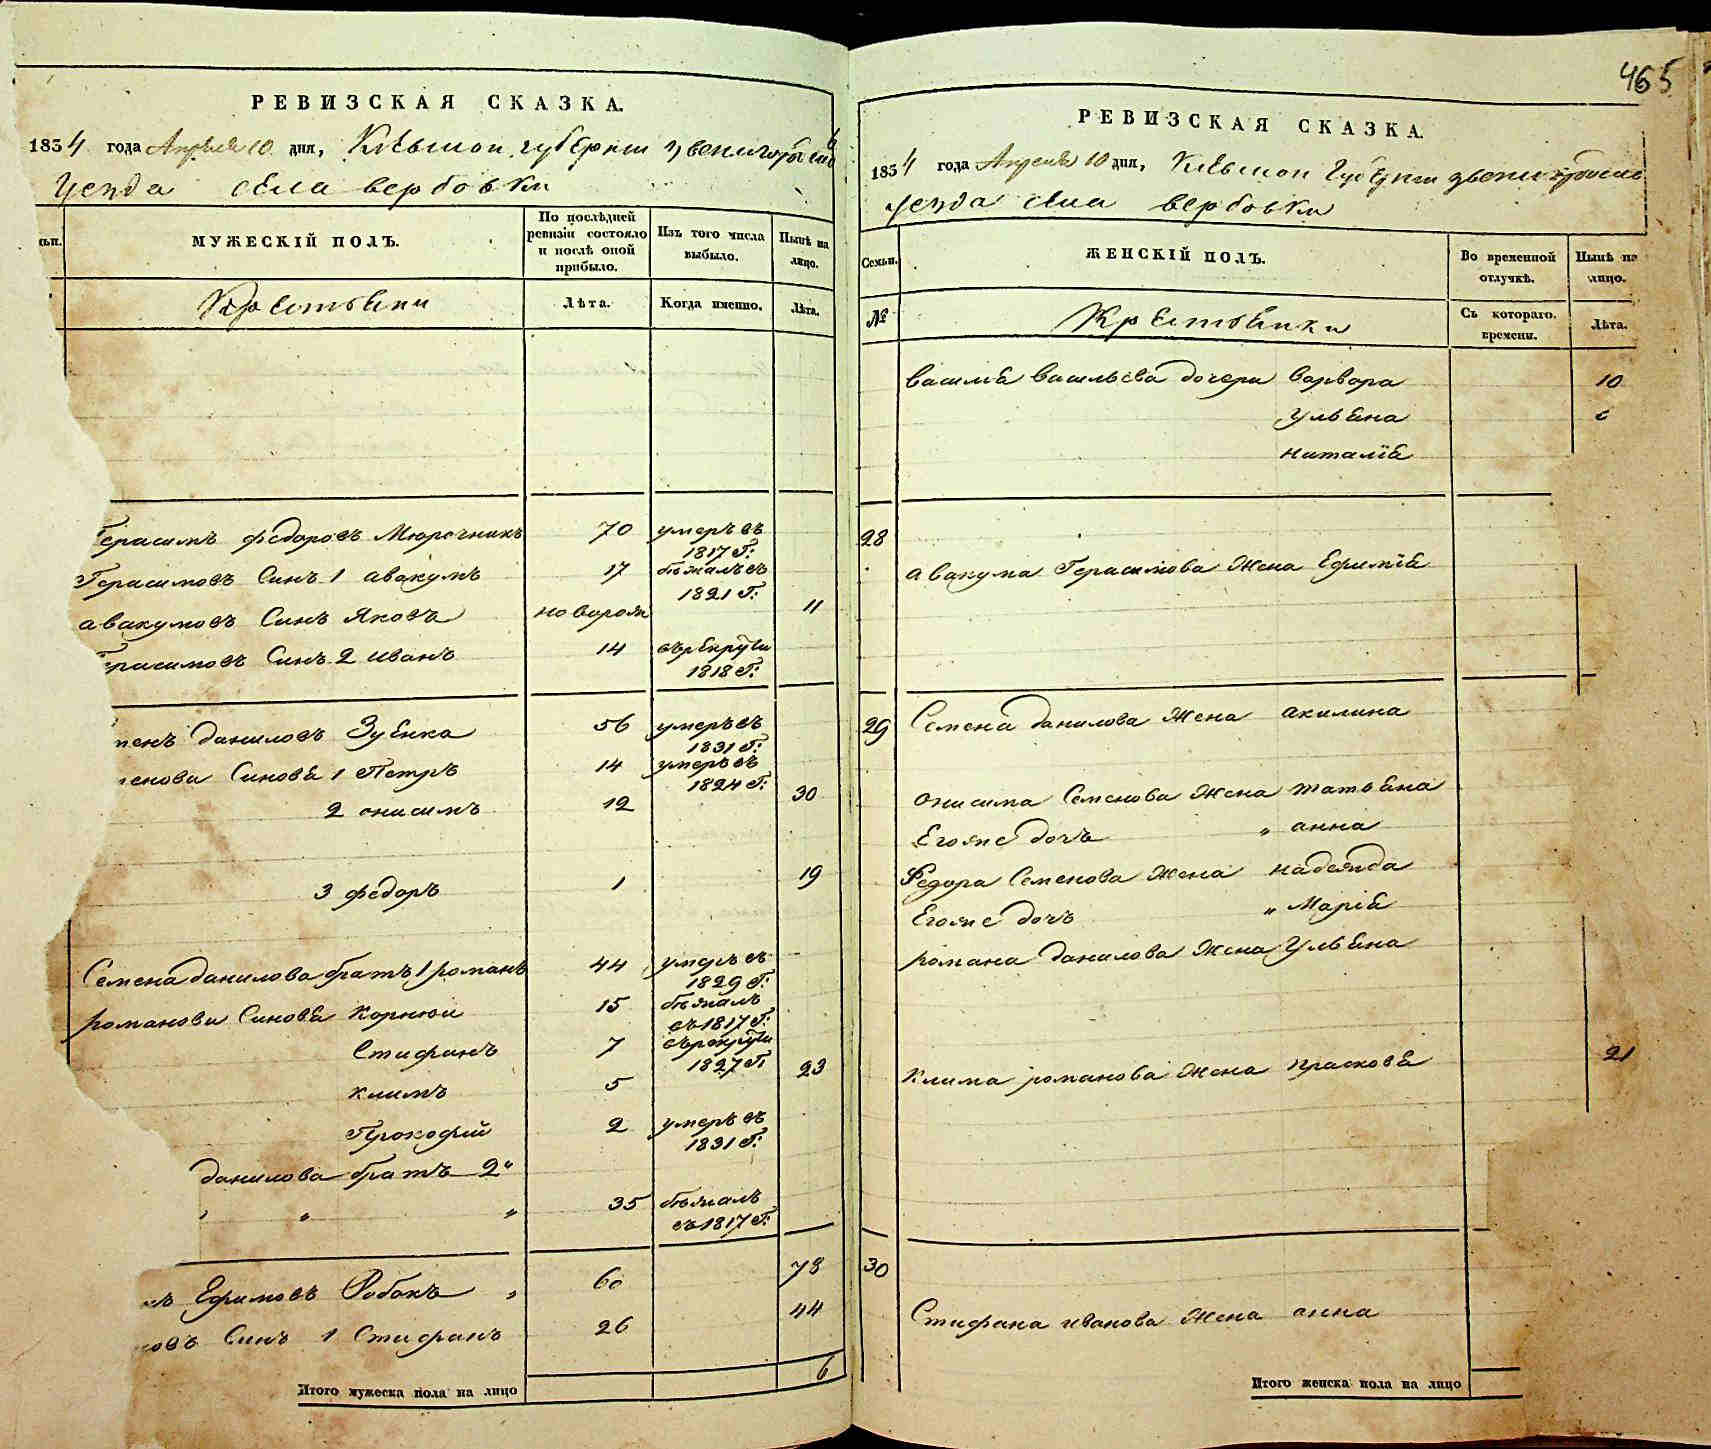 465
РЕВИЗСКАЯ СКАЗКА.
1834 года Апреля 10 дня, Киевской губернии Звенигородского
уезда села вербовки
ьи.
МУЖЕСКІЙ ПОЛЪ.
По послѣдней ревизіи состояло и послѣ оной прибыло.
Изъ того числа выбыло.
Нынѣ на лицо.
Крестьяни
Лѣта.
Когда именно.
Лѣта.
Герасимъ федоровъ Мюрочникъ 70 умеръ въ 1817 Г:
Герасимовъ Синъ 1 авакумъ 17 бѣжалъ въ 1821 Г:
авакумовъ Синъ Яковъ новорож 11
Герасимовъ Синъ 2 иванъ 14 въ рекруты 1818 Г:
менъ даниловъ Зуенко 56 умеръ въ 1831 Г:
менови Синовя 1 Петръ 14 умеръ въ 1824 Г:
2 онисимъ 12 30
3 федоръ 1 19
Семена данилова братъ 1 романъ 44 умеръ въ 1829 Г:
романови Синовя Корнюи 15 бѣжалъ въ 1817 Г:
Стифанъ 7 въ рекруты 1827 Г:
климъ 5 23
Прокофий 2 умеръ въ 1831 Г:
данилова братъ 2"
" " 35 бѣжалъ въ 1817 Г:
нъ Ефимовъ Робакъ " 60 78
новъ Синъ 1 Стифанъ 26 44
Итого мужеска пола на лицо 6
РЕВИЗСКАЯ СКАЗКА.
1834 года Апреля 10 дня, Киевской Губернии звенигородско
уезда села вербовки
Семьи.
ЖЕНСКІЙ ПОЛЪ.
Во временной отлучкѣ.
Нынѣ на лицо.
№
Крестьянки
Съ котораго времени.
Лѣта.
василя васильева дочери варвара 10
ульяна 6
наталія
28
авакума Герасимова Жена Ефимія
29 Семена данилова Жена акилина
онисима Семенова Жена татьяна
Егоже дочъ " анна
Федора Семенова Жена надежда
Егоже дочъ " Марія
романа данилова Жена Ульяна
клима романова Жена прасковя 21
30
Стифана иванова Жена анна
Итого женска пола на лицо